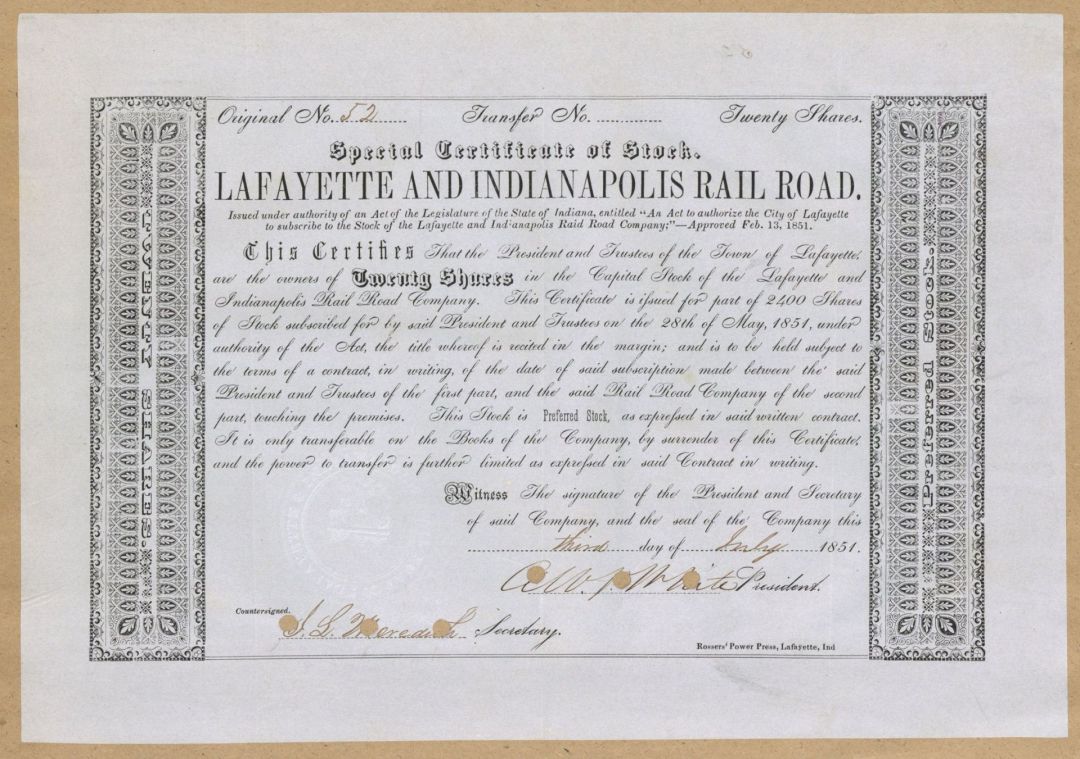 Original No. 52 Transfer No. Twenty Shares.
Special Certificate of Stock.
LAFAYETTE AND INDIANAPOLIS RAIL ROAD.
Issued under authority of an Act of the Legislature of the State of Indiana, entitled "An Act to authorize the City of Lafayette
to subscribe to the Stock of the Lafayette and Indianapolis Raid Road Company;"—Approved Feb. 13, 1851.
This Certifies That the President and Trustees of the Town of Lafayette,
are the owners of Twenty Shares in the Capital Stock of the Lafayette and
Indianapolis Rail Road Company. This Certificate is issued for part of 2400 Shares
of Stock subscribed for by said President and Trustees on the 28th of May, 1851, under
authority of the Act, the title whereof is recited in the margin; and is to be held subject to
the terms of a contract, in writing, of the date of said subscription made between the said
President and Trustees of the first part, and the said Rail Road Company of the second
part, touching the premises. This Stock is Preferred Stock, as expressed in said written contract.
It is only transferable on the Books of the Company, by surrender of this Certificate,
and the power to transfer is further limited as expressed in said Contract in writing.
Witness The signature of the President and Secretary
of said Company, and the seal of the Company this
third day of July 1851.
White President.
Countersigned.
Meredith Secretary.
Rossers' Power Press, Lafayette, Ind
TWENTY SHARES.
Preferred Stock.